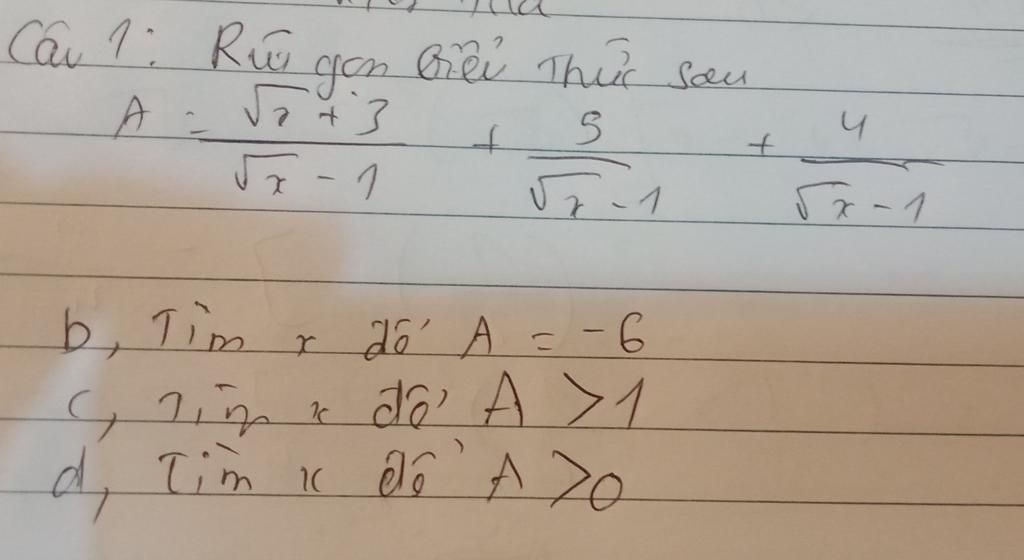 Câu 1: Rút gọn biểu thức sau
A = \frac{\sqrt{x} + 3}{\sqrt{x} - 1} + \frac{5}{\sqrt{x} - 1} + \frac{4}{\sqrt{x} - 1}
b, Tìm x để A = -6
c, Tìm x để A > 1
d, Tìm x để A > 0